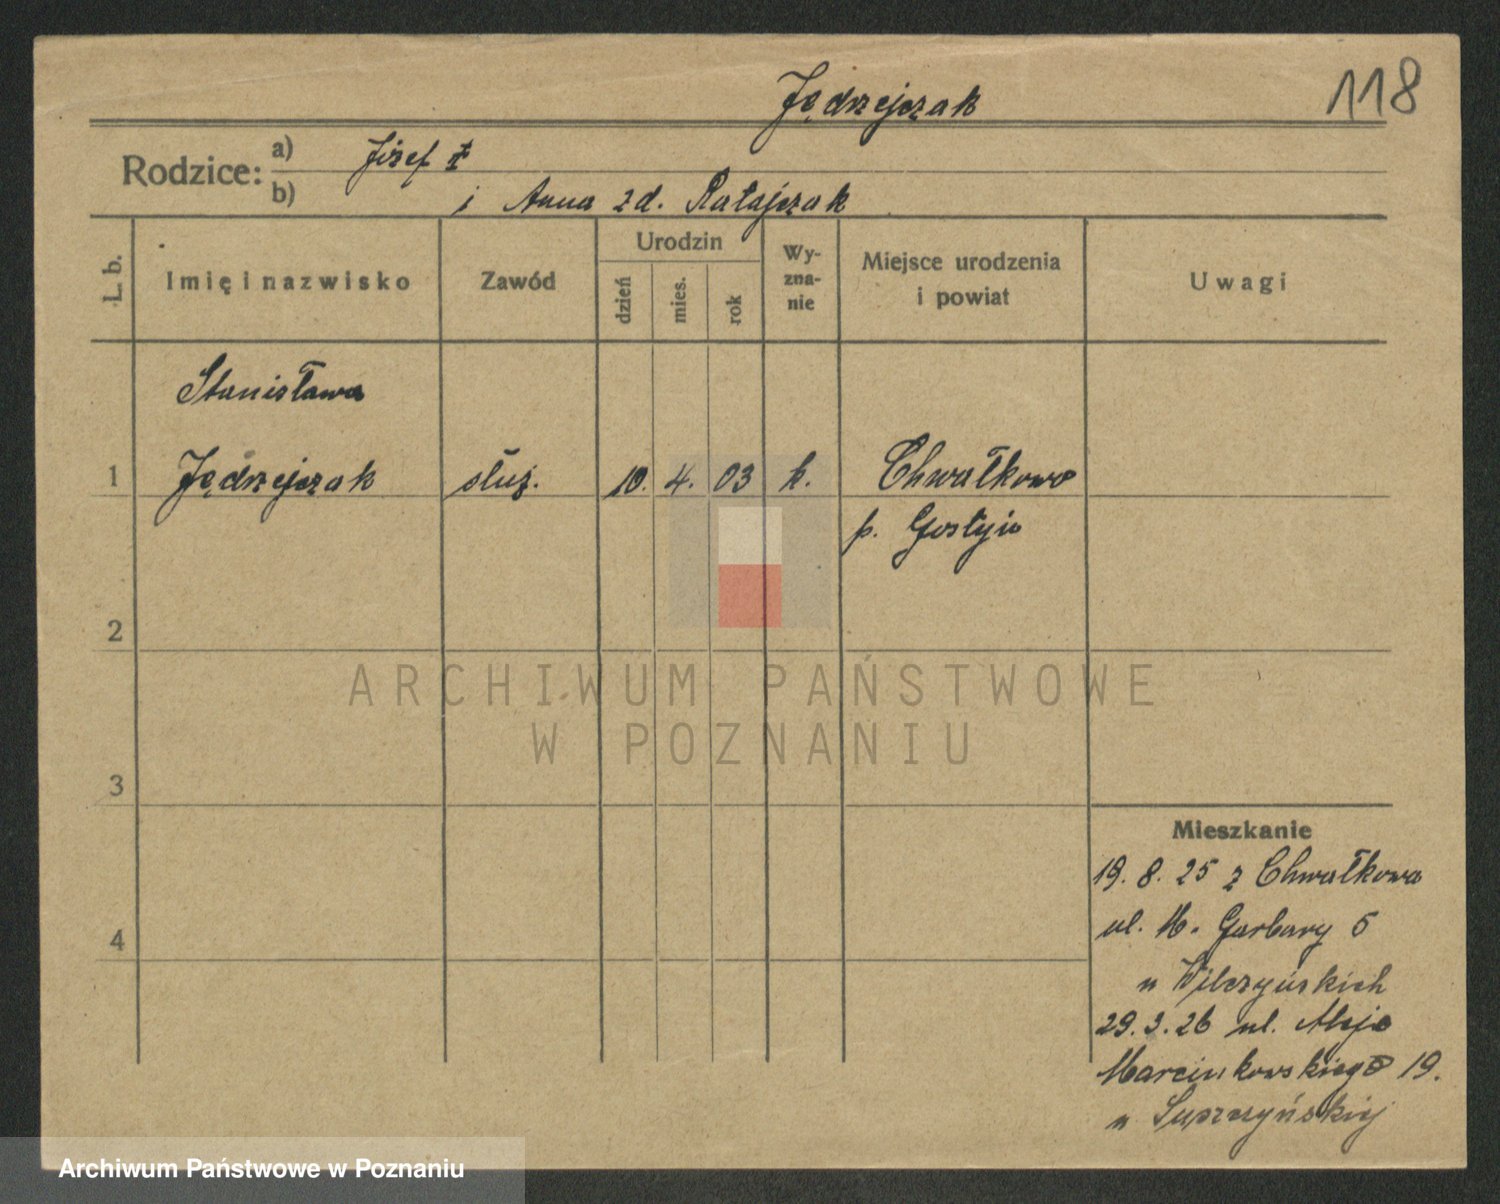 Jędrzejczak
118
Rodzice:
a) Józef
b) i Anna zd. Ratajczak
L. b.
Imię i nazwisko
Zawód
Urodzin
dzień
mies.
rok
Wy-
zna-
nie
Miejsce urodzenia
i powiat
Uwagi
Stanisława
1 Jędrzejczak służ. 10. 4. 03 k. Chwałkowo
p. Gostyń
2
3
4
ARCHIWUM PAŃSTWOWE
W POZNANIU
Mieszkanie
19. 8. 25 z Chwałkowa
ul. M. Garbary 5
u Wilczyńskich
29. 3. 26 ul. Aleje
Marcinkowskiego 19.
u
Archiwum Państwowe w Poznaniu